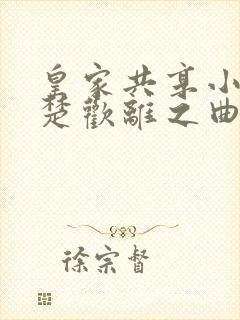 皇家共享小
楚歡離之曲
徐宗督